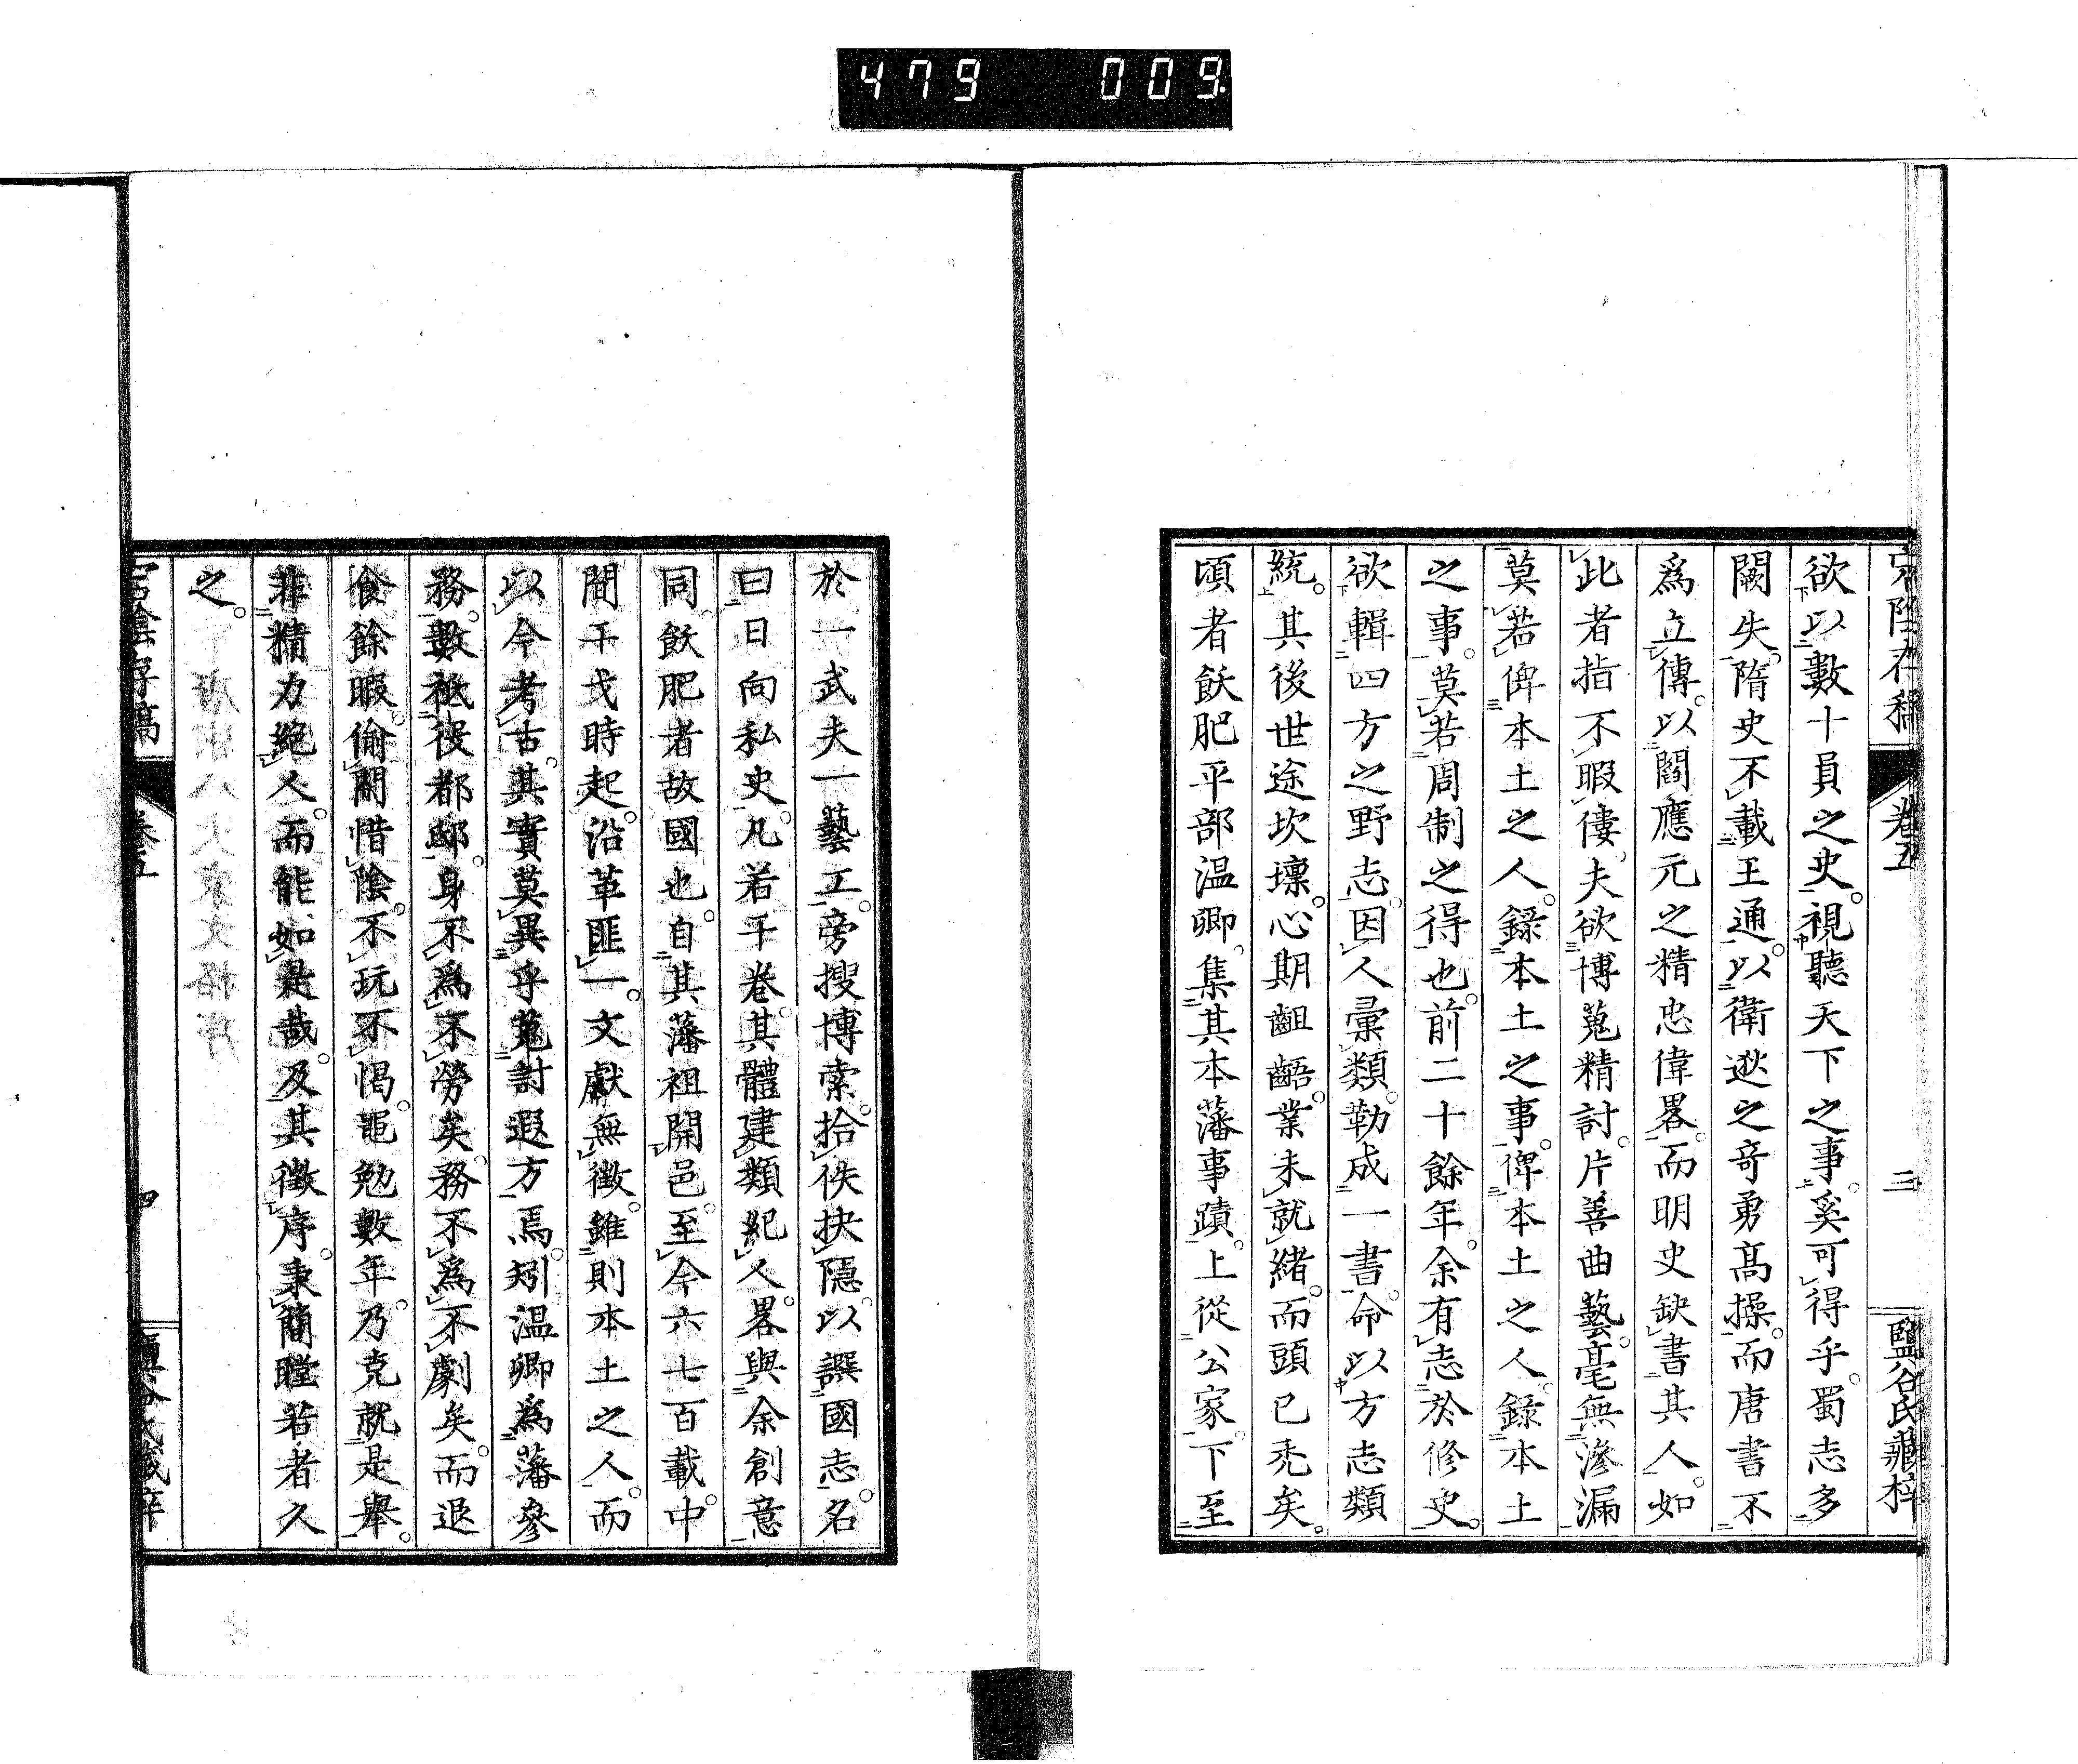 479 009
宕陰存稿 卷五 三 鹽谷氏藏梓
欲以數十員之史。視聽天下之事。奚可得乎。蜀志多
闕失。隋史不載王通。以衛逖之奇勇高操。而唐書不
爲立傳。以閻應元之精忠偉畧。而明史缺書其人。如
此者指不暇僂。夫欲博蒐精討。片善曲藝。毫無滲漏
莫若俾本土之人。錄本土之事。俾本土之人。錄本土
之事。莫若周制之得也。前二十餘年。余有志於修史。
欲輯四方之野志。因人彙類。勒成一書。命以方志類
統。其後世途坎壈。心期齟齬。業未就緒。而頭已禿矣。
頃者飫肥平部温卿。集其本藩事蹟。上從公家。下至
於一武夫一藝工。旁搜博索。拾佚抉隱。以譔國志。名
曰日向私史。凡若干卷。其體建類紀人。畧與余創意
同。飫肥者故國也。自其藩祖開邑。至今六七百載。中
間干戈時起。沿革匪一。文獻無徵。雖則本土之人。而
以今考古。其實莫異乎蒐討遐方焉。矧温卿爲藩參
務。數祗役都邸。身不爲不勞矣。務不爲不劇矣。而退
食餘暇。偷閑惜陰。不玩不愒。黽勉數年。乃克就是舉。
非精力絶人。而能如是哉。及其徵序。秉簡瞠若者久
之。
宕陰存稿 卷五 四 鹽谷氏藏梓